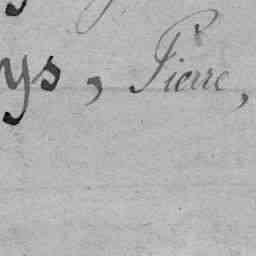 ys, Pierre,